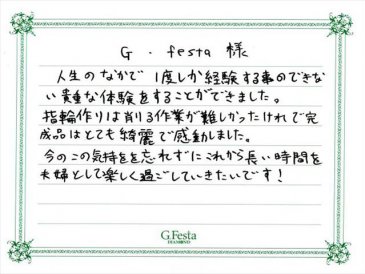 G・festa 様
人生のなかで 1度しか経験する事のできな
い貴重な体験をすることができました。
指輪作りは削る作業が難しかったけれで完
成品はとても綺麗で感動しました。
今のこの気持をを忘れずにこれから長い時間を
夫婦として楽しく過ごしていきたいです！
G.Festa
DIAMOND